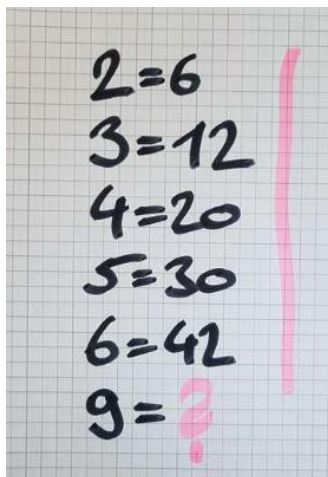 2=6
3=12
4=20
5=30
6=42
9=?